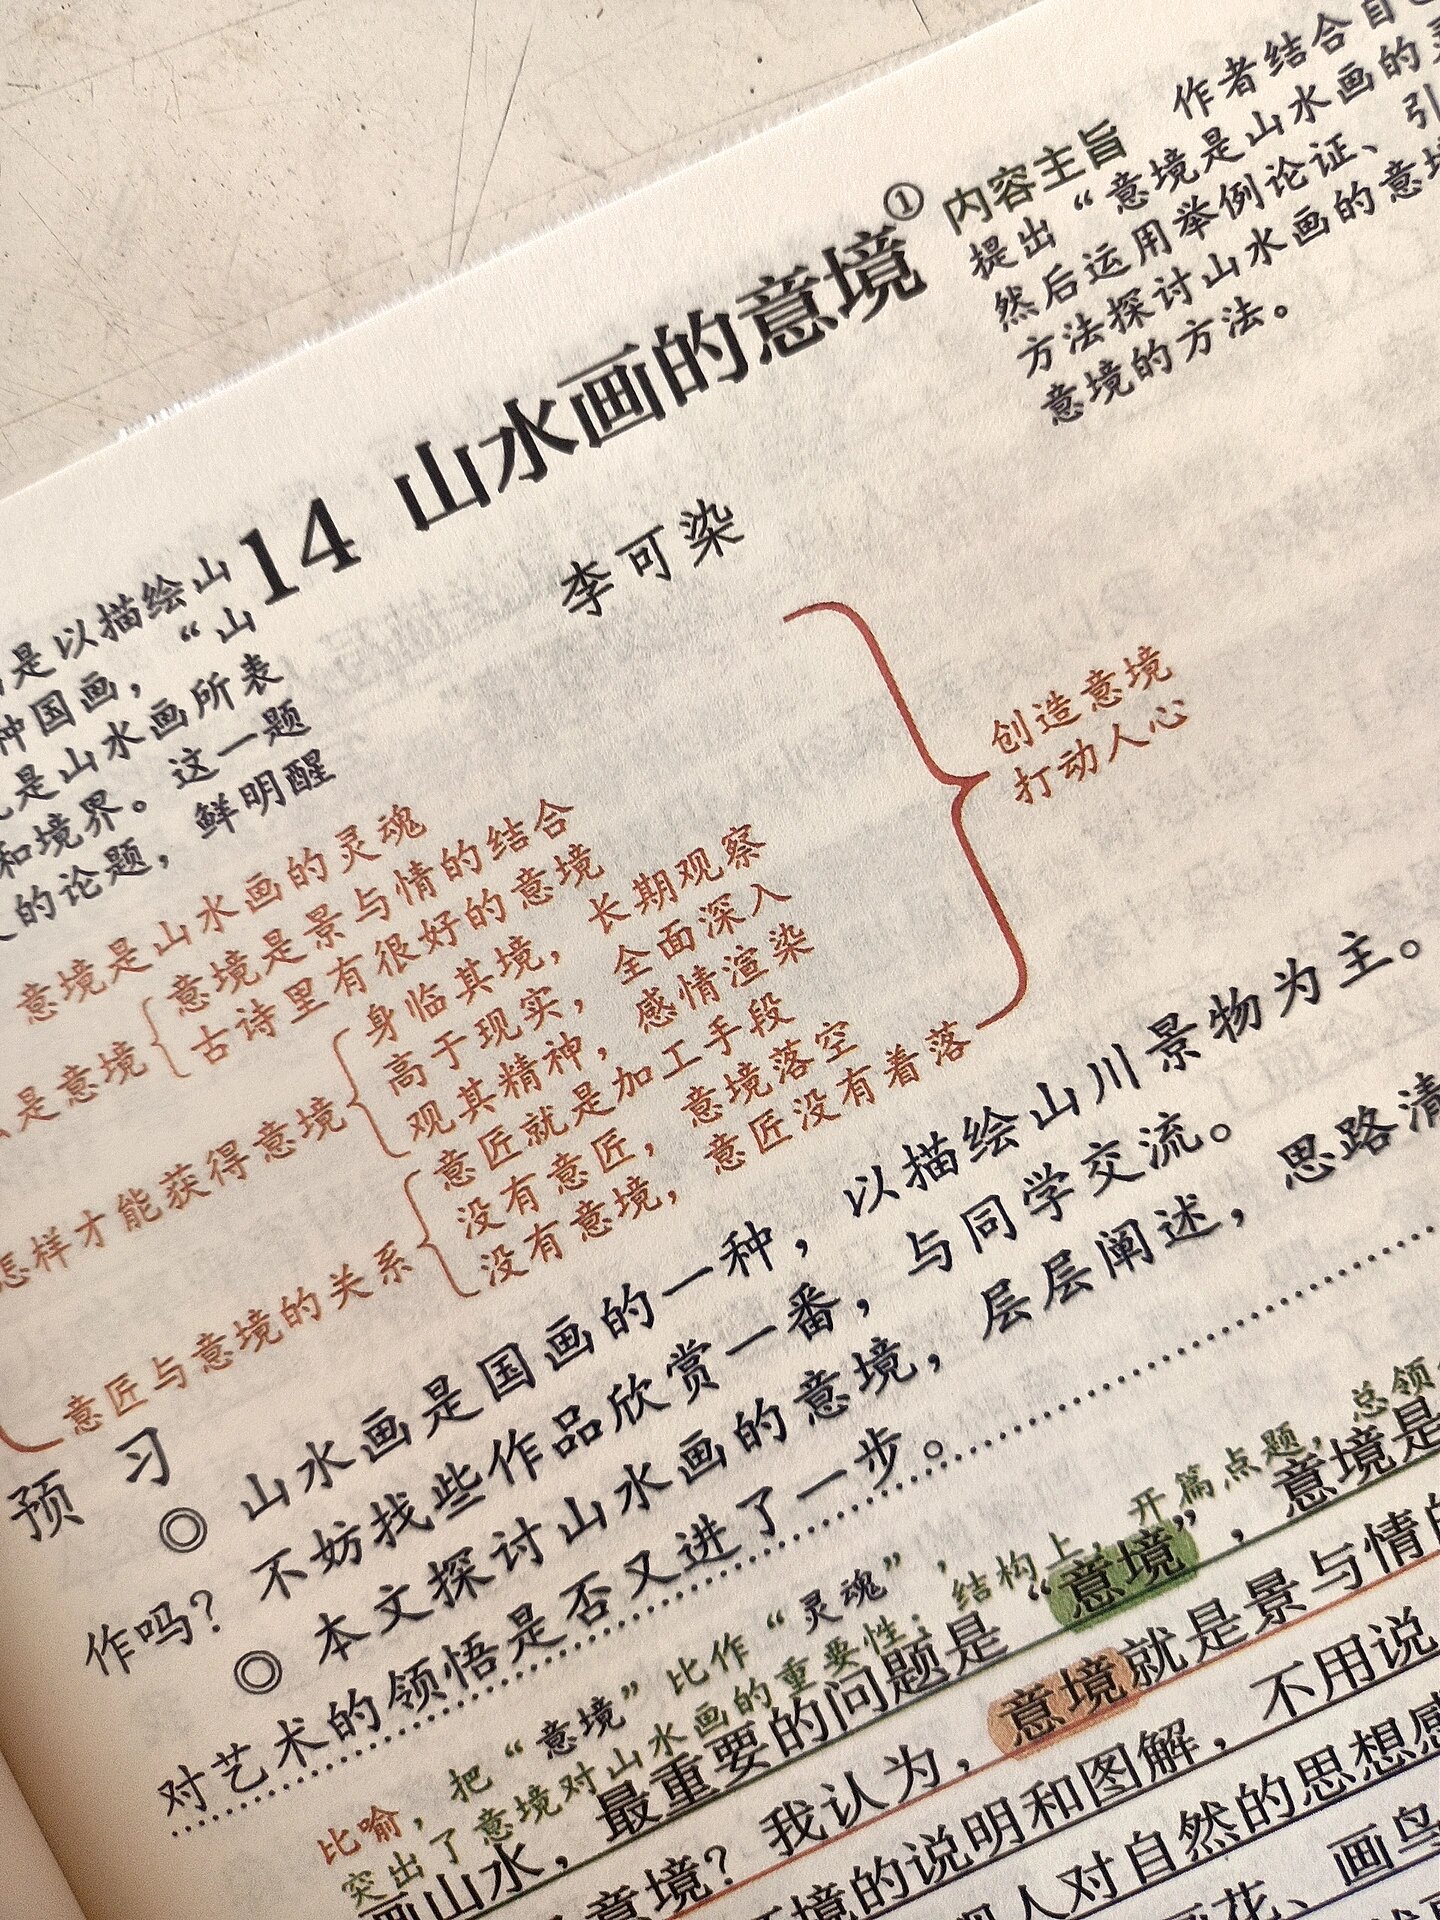 14 山水画的意境①
李可染
内容主旨 作者结合自
提出“意境是山水画的
然后运用举例论证、引
方法探讨山水画的意境
意境的方法。
是以描绘山
种国画，“山
是山水画所表
和境界。这一题
的论题，鲜明醒
意境是山水画的灵魂
是意境
意境是景与情的结合
古诗里有很好的意境
怎样才能获得意境
身临其境，长期观察
高于现实，全面深入
观其精神，感情渲染
意匠与意境的关系
意匠就是加工手段
没有意匠，意境落空
没有意境，意匠没有着落
创造意境
打动人心
预 习
◎ 山水画是国画的一种，以描绘山川景物为主。
作吗？不妨找些作品欣赏一番，与同学交流。
◎ 本文探讨山水画的意境，层层阐述，思路清
对艺术的领悟是否又进了一步。
比喻，把“意境”比作“灵魂”，
突出了意境对山水画的重要性；结构上，开篇点题，总领
画山水，最重要的问题是“意境”，意境是
意境？我认为，意境就是景与情的
境的说明和图解，不用说
人对自然的思想感
花、画鸟